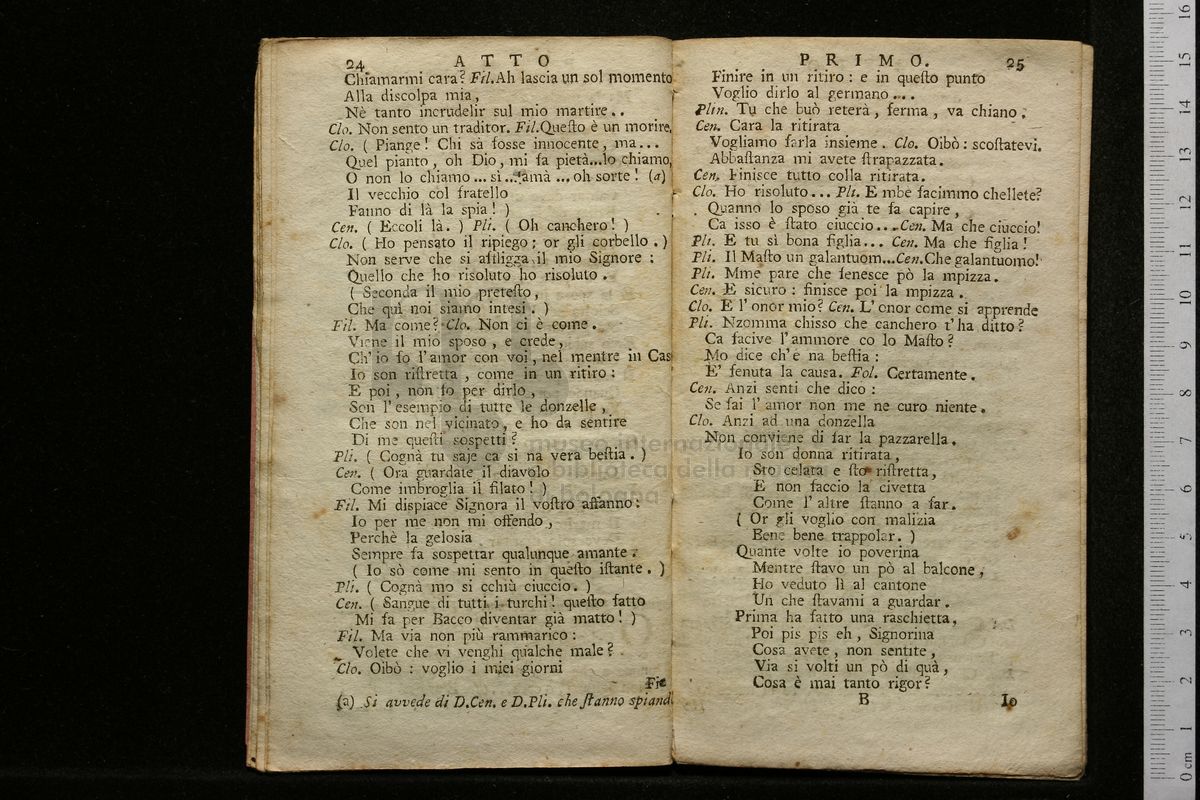 24 ATTO
Chiamarmi cara? Fil. Ah lascia un sol momento
Alla discolpa mia,
Nè tanto incrudelir sul mio martire..
Clo. Non sento un traditor. Fil. Queſto è un morire,
Clo. ( Piange! Chi sà foſse innocente, ma...
Quel pianto, oh Dio, mi fa pietà...lo chiamo,
O non lo chiamo... sì... amà... oh sorte! (a)
Il vecchio col fratello
Fanno di là la spia! )
Cen. ( Eccoli là. ) Pli. ( Oh canchero! )
Clo. ( Ho pensato il ripiego; or gli corbello. )
Non serve che si affligga il mio Signore:
Quello che ho risoluto ho risoluto.
( Seconda il mio preteſto,
Che quì noi siamo intesi. )
Fil. Ma come? Clo. Non ci è come.
Viene il mio sposo, e crede,
Ch' io fo l'amor con voi, nel mentre in Cas
Io son riſtretta, come in un ritiro:
E poi, non fo per dirlo,
Son l'esempio di tutte le donzelle,
Che son nel vicinato, e ho da sentire
Di me queſti sospetti?
Pli. ( Cognà tu saje ca si na vera beſtia. )
Cen. ( Ora guardate il diavolo
Come imbroglia il filato! )
Fil. Mi dispiace Signora il voſtro affanno:
Io per me non mi offendo,
Perchè la gelosia
Sempre fa sospettar qualunque amante.
( Io sò come mi sento in queſto iſtante. )
Pli. ( Cognà mo si cchiù ciuccio. )
Cen. ( Sangue di tutti i turchi! queſto fatto
Mi fa per Bacco diventar già matto! )
Fil. Ma via non più rammarico:
Volete che vi venghi qualche male?
Clo. Oibò: voglio i miei giorni
Fi-
(a) Si avvede di D.Cen. e D.Pli. che ſtanno spiand
PRIMO. 25
Finire in un ritiro: e in queſto punto
Voglio dirlo al germano...
Plin. Tu che buò reterà, ferma, va chiano.
Cen. Cara la ritirata
Vogliamo farla insieme. Clo. Oibò: scoſtatevi.
Abbaſtanza mi avete ſtrapazzata.
Cen. Finisce tutto colla ritirata.
Clo. Ho risoluto... Pli. E mbe facimmo chellete?
Quanno lo sposo già te fa capire,
Ca isso è ſtato ciuccio... Cen. Ma che ciuccio!
Pli. E tu sì bona figlia... Cen. Ma che figlia!
Pli. Il Maſto un galantuom...Cen. Che galantuomo!
Pli. Mme pare che fenesce pò la mpizza.
Cen. E sicuro: finisce poi la mpizza.
Clo. E l'onor mio? Cen. L'onor come si apprende
Pli. Nzomma chisso che canchero t'ha ditto?
Ca facive l'ammore co lo Maſto?
Mo dice ch'è na beſtia:
E' fenuta la causa. Fol. Certamente.
Cen. Anzi senti che dico:
Se fai l'amor non me ne curo niente.
Clo. Anzi ad una donzella
Non conviene di far la pazzarella.
Io son donna ritirata,
Sto celata e ſto riſtretta,
E non faccio la civetta
Come l'altre ſtanno a far.
( Or gli voglio con malizia
Bene bene trappolar. )
Quante volte io poverina
Mentre ſtavo un pò al balcone,
Ho veduto lì al cantone
Un che ſtavami a guardar.
Prima ha fatto una raschietta,
Poi pis pis eh, Signorina
Cosa avete, non sentite,
Via si volti un pò di quà,
Cosa è mai tanto rigor?
B Io
museo internazionale
biblioteca della musica
bologna
0 cm 1 2 3 4 5 6 7 8 9 10 11 12 13 14 15 16